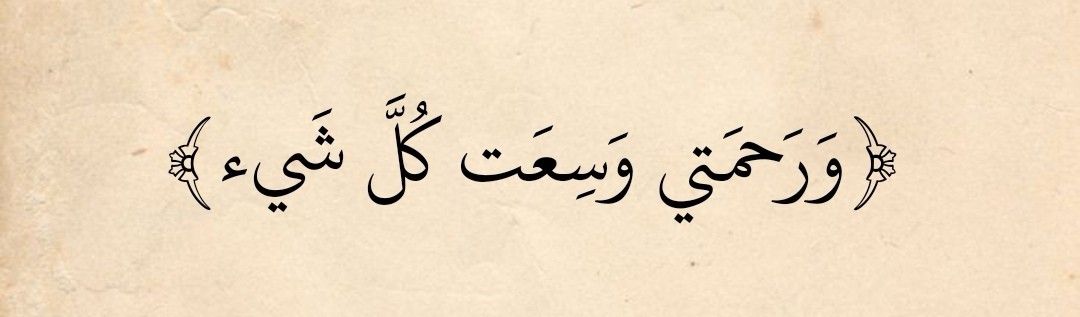 ﴿ وَرَحمَتي وَسِعَت كُلَّ شَيء ﴾